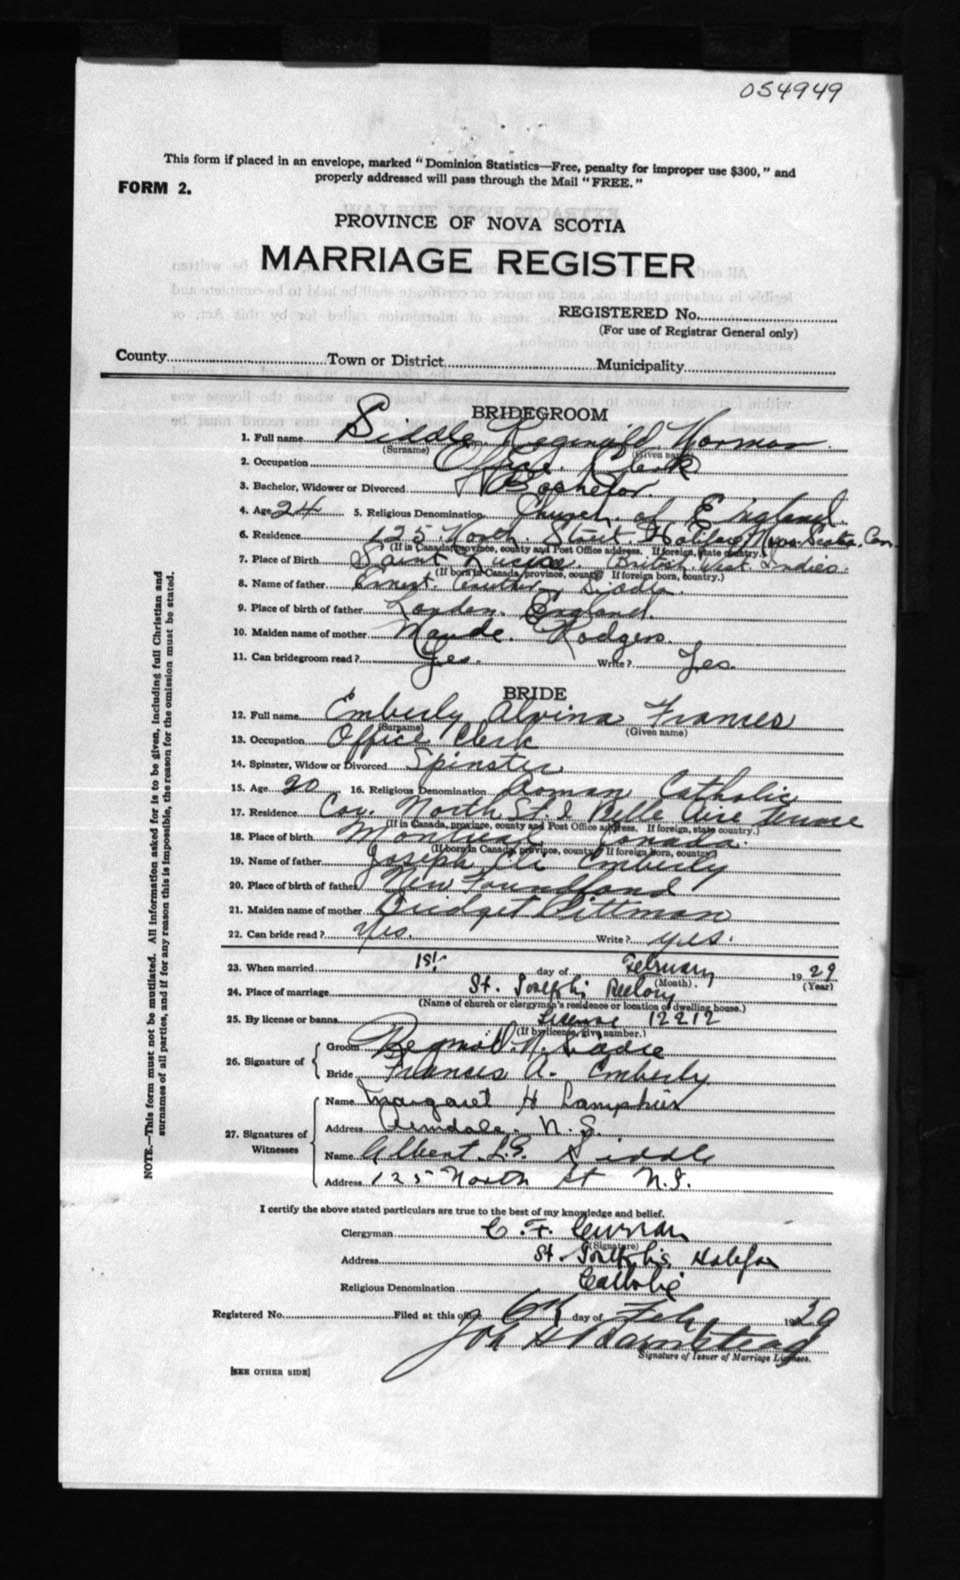 054949
This form if placed in an envelope, marked "Dominion Statistics—Free, penalty for improper use $300," and
properly addressed will pass through the Mail "FREE."
FORM 2.
PROVINCE OF NOVA SCOTIA
MARRIAGE REGISTER
REGISTERED No.
(For use of Registrar General only)
County Town or District Municipality
BRIDEGROOM
1. Full name Siddle Reginald Norman
(Surname) (Given name)
2. Occupation Office Clerk
3. Bachelor, Widower or Divorced Bachelor.
4. Age 24 5. Religious Denomination Church of England
6. Residence 125 North Street Halifax Nova Scotia Can
(If in Canada, province, county and Post Office address. If foreign, state country.)
7. Place of Birth Saint Lucia British West Indies.
(If born in Canada, province, county If foreign born, country.)
8. Name of father Ernest Siddle
9. Place of birth of father London England.
10. Maiden name of mother Maude Hodgers.
11. Can bridegroom read? Yes. Write? Yes
BRIDE
12. Full name Emberly Alvina Frances
(Surname) (Given name)
13. Occupation Office Clerk
14. Spinster, Widow or Divorced Spinster
15. Age 20 16. Religious Denomination Roman Catholic
17. Residence Cor. North St & Belle Aire Terrace
(If in Canada, province, county and Post Office address. If foreign, state country.)
18. Place of birth Montreal Canada.
(If born in Canada, province, county If foreign born, country)
19. Name of father Joseph Eli Emberly
20. Place of birth of father New Foundland
21. Maiden name of mother Bridget Pittman
22. Can bride read? Yes. Write? yes.
23. When married 1st day of February 1929
(Month) (Year)
24. Place of marriage St. Joseph's Rectory
(Name of church or clergyman's residence or location of dwelling house.)
25. By license or banns License 12212
(If by license, give number.)
26. Signature of
Groom Reginald N. Siddle
Bride Frances A. Emberly
27. Signatures of Witnesses
Name Margaret H Lamphier
Address Armdale, N.S.
Name Albert L.G. Siddle
Address 125 North St N.S.
I certify the above stated particulars are true to the best of my knowledge and belief.
Clergyman C. F. Curran
(Signature)
Address St. Joseph's, Halifax
Religious Denomination Catholic
Registered No. Filed at this office 6th day of Feby 1929
Signature of Issuer of Marriage Licenses.
[SEE OTHER SIDE]
NOTE.—This form must not be mutilated. All information asked for is to be given, including full Christian and
surnames of all parties, and if for any reason this is impossible, the reason for the omission must be stated.